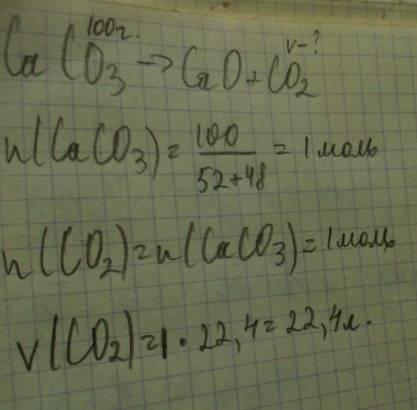 100г. v-?
CaCO₃ → CaO + CO₂
n(CaCO₃) = 100/52+48 = 1 моль
n(CO₂) = n(CaCO₃) = 1 моль
V(CO₂) = 1 · 22,4 = 22,4 л.